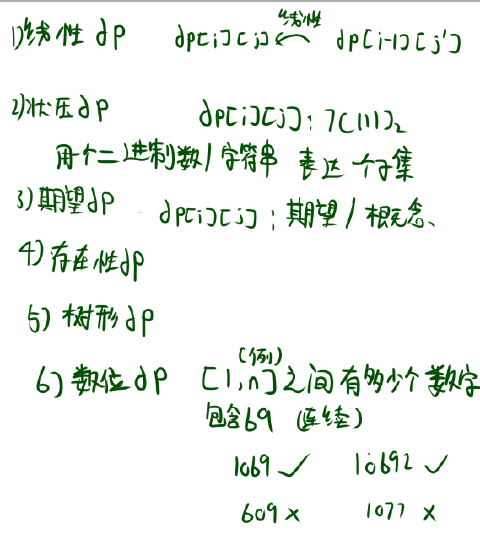 线性
1)线性dp dp[i][j] ← dp[i-1][j']
2)状压dp dp[i][j]: 7(111)₂
用个二进制数/字符串 表达 个子集
3)期望dp dp[i][j]: 期望/概念、
4)存在性dp
5)树形dp
(例)
6)数位dp [1,n]之间有多少个数字
包含69 (连续)
1069 ✓ 10692 ✓
609 × 1077 ×